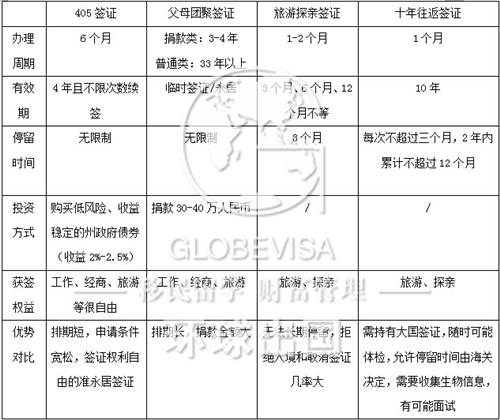 405 签证 父母团聚签证 旅游探亲签证 十年往返签证
办理周期 6 个月 捐款类：3-4年 普通类：33 年以上 1-2个月 1 个月
有效期 4 年且不限次数续签 临时签证/永居 3 个月、6 个月、12 个月不等 10 年
停留时间 无限制 无限制 3 个月 每次不超过三个月，2 年内累计不超过 12 个月
投资方式 购买低风险、收益稳定的州政府债券（收益 2%-2.5%） 捐款 30-40 万人民币 / /
GLOBEVISA
获签权益 工作、经商、旅游等很自由 工作、经商、旅游 旅游、探亲 旅游、探亲
移民留学 财富管理
优势对比 排期短，申请条件宽松，签证权利自由的准永居签证 排期长，捐款金额大 无法长期停留，拒绝入境和取消签证几率大 需持有大国签证，随时可能体检，允许停留时间由海关决定，需要收集生物信息，有可能面试
环球出国